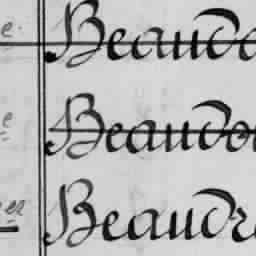 e. Beaudo
e Beaudo
er Beaudr